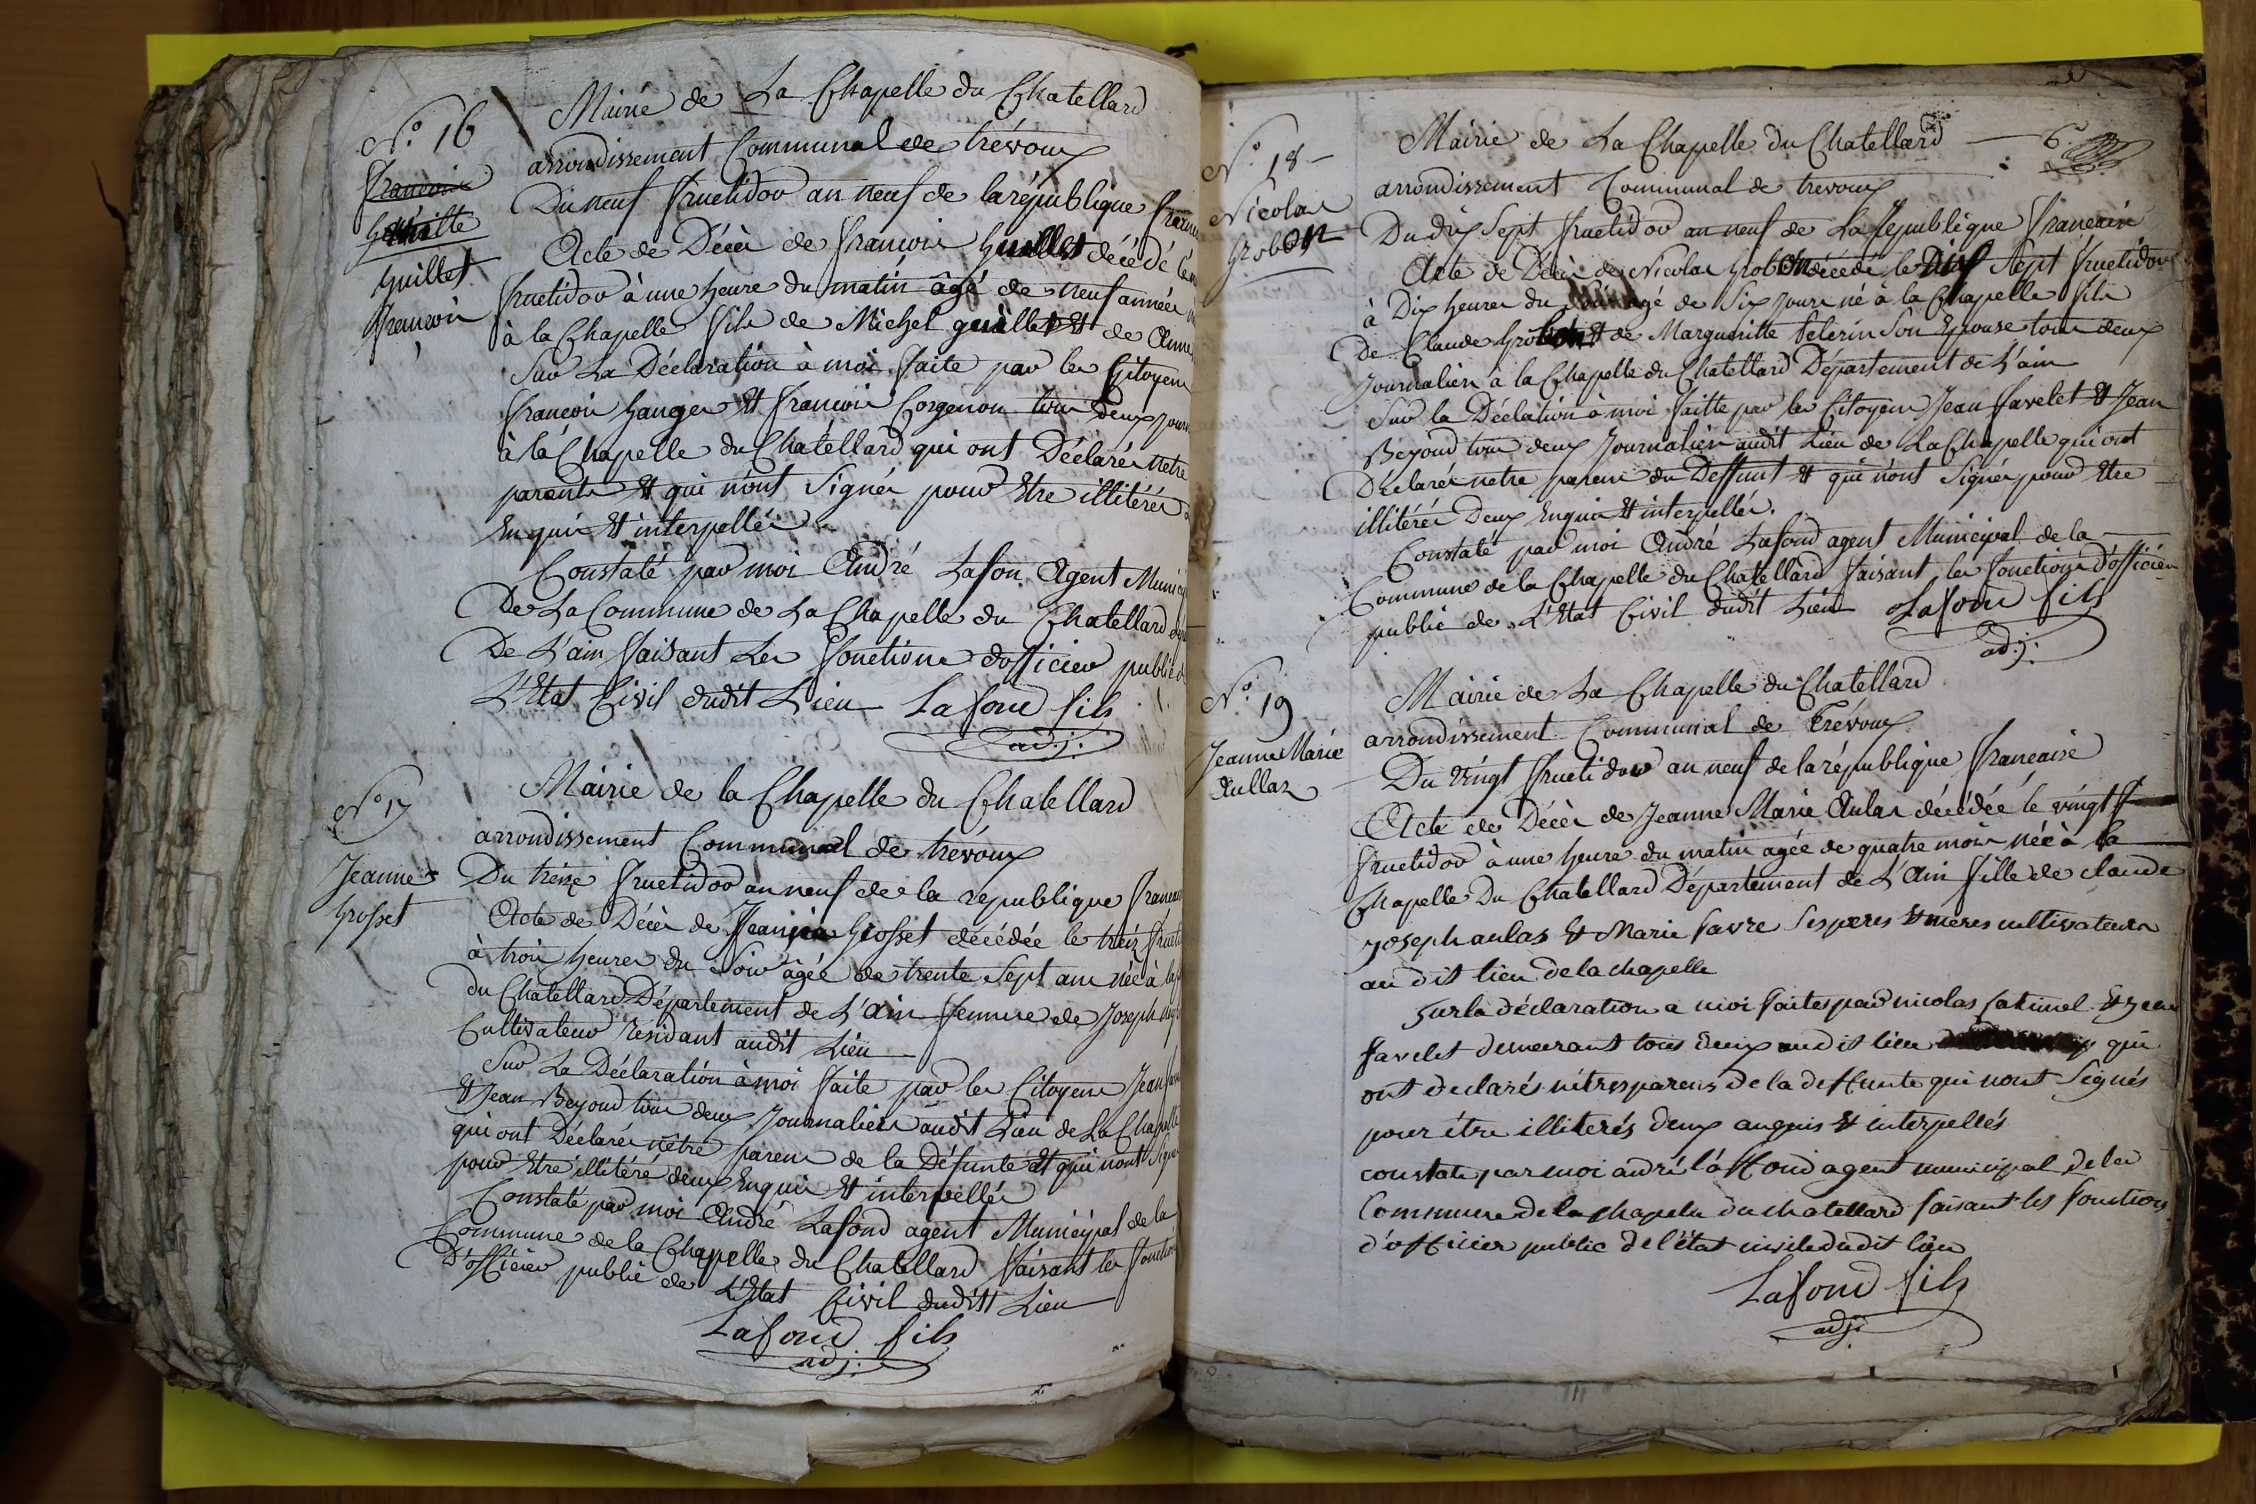 N.º 16
francois
guillet
francois
Mairie de La Chapelle du Chatellard
arrondissement Communal de trévoux
Du neuf fructidor an neuf de la république
Acte de Décès de francois guillet décédé le
fructidor à une heure du matin âgé de neuf année
à la Chapelle fils de Michel guillet & de Anne
Sur La Déclaration à moi faite par les Citoyens
francois hanger & francois Corgenon tous deux
à la Chapelle du Chatellard qui ont Déclarés netre
parents & qui n'ont Signés pour Etre illitérés
Enquis & interpellés
Constaté par moi André Lafon Agent
De La Commune de La Chapelle du Chatellard
De L'ain faisant Les fonctions d'officier public
L'Etat Civil dudit Lieu Lafond fils
adj.
N.º 17
Jeanne
Grosset
Mairie de la Chapelle du Chatellard
arrondissement Communal de trévoux
Du treize fructidor an neuf de la republique
Acte de Décès de Grosset décédée le treiz
à trois heures du Soir âgée de trente Sept ans née à
du Chatellard Département de L'Ain femme de Joseph
Cultivateur résidant audit Lieu
Sur La Déclaration à moi faite par les Citoyens Jean
& Jean Beyond tous deux Journaliers audit Lieu de La Chapelle
qui ont Déclarés nêtre parens de la Défunte & qui n'ont
pour Etre illitére deux Enquis & interpellés
Constaté par moi André Lafond agent Municipal de la
Commune de la Chapelle du Chatellard faisant les
D'officier public de L'Etat Civil dudit Lieu
Lafond fils
adj.
6.
N.º 18
Nicolas
Grobon
Mairie de La Chapelle du Chatellard
arrondissement Communal de trevoux
Du dix Sept fructidor an neuf de La republique francaise
Acte de Décès de Nicolas Grobon décédé le Dix Sept fructidor
à Dix heures du agé de Six jours né à la Chapelle fils
De Claude Grobon & de Margueritte pelerin Son Epouse tous deux
Journaliers à la Chapelle du Chatellard Département de L'ain
Sur la Déclation à moi faitte par les Citoyens Jean favelet & Jean
Beyond tous deux Journaliers audit Lieu de La Chapelle qui ont
Déclarés netre parens du Deffunt & qui n'ont Signés pour Etre
illitérés Deux Enquis & interpellés.
Constaté par moi André Lafond agent Municipal de la
Commune de la Chapelle du Chatellard faisant les fonctions d'officier
public de L'Etat Civil dudit Lieu Lafond fils
adj.
N.º 19
Jeanne Marie
Aullas
Mairie de La Chapelle du Chatellard
arrondissement Communal de Trévoux
Du vingt fructidor an neuf de la république francaise
Acte de Décès de Jeanne Marie Aulas décédée le vingt
fructidor à une heure du matin agée de quatre mois née à la
Chapelle Du Chatellard Département de L'Ain fille de claude
joseph aulas & Marie favre ses peres & meres cultivateurs
au dit lieu de la chapelle
sur la déclaration a moi faites par nicolas catimel & jean
favelet demeurant tous deux audit lieu qui
ont declarés n'etres parens de la deffunte qui nont Signés
pour étre illiterés deux anquis & interpellés
constate par moi andré laffond agent municipal de la
Commune de la chapelle du chatellard faisant les fonctions
d'officier public de l'état civile dudit lieu
Lafond fils
adj.